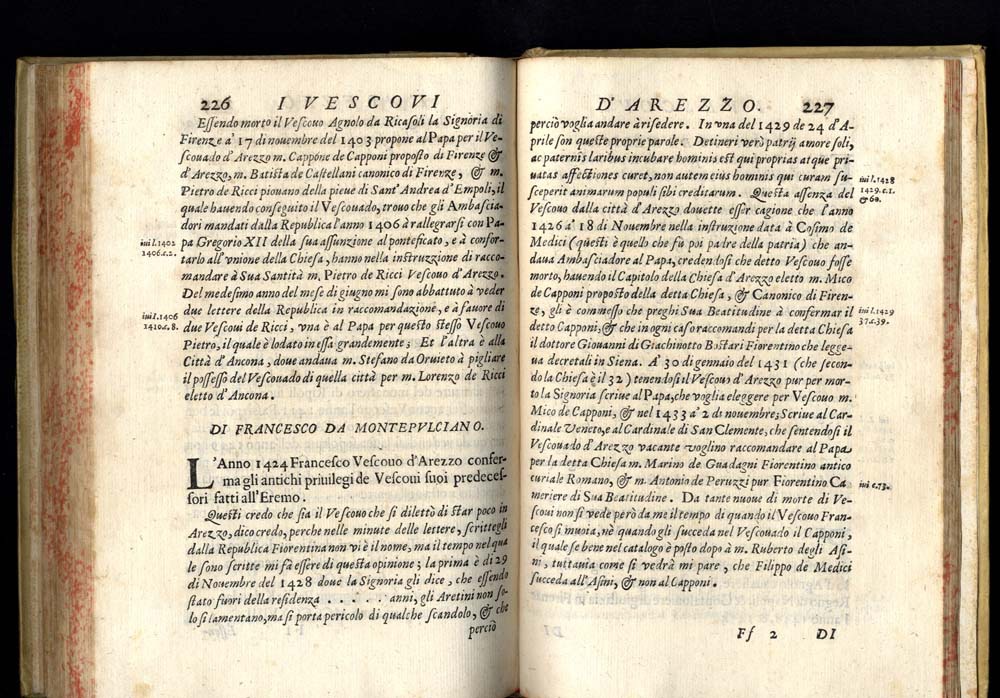 226 I VESCOVI
Essendo morto il Vescouo Agnolo da Ricasoli la Signoria di
Firenze a' 17 di nouembre del 1403 propone al Papa per il Ve-
scouado d'Arezzo m. Cappone de Capponi proposto di Firenze &
d'Arezzo, m. Batista de Castellani canonico di Firenze, & m.
Pietro de Ricci piouano della pieue di Sant'Andrea d'Empoli, il
quale hauendo conseguito il Vescouado, trouo che gli Ambascia-
dori mandati dalla Republica l'anno 1406 à rallegrarsi con Pa-
iui l.1402
pa Gregorio XII della sua assunzione al ponteficato, e à confor-
1406.c.2.
tarlo all'vnione della Chiesa, hanno nella instruzzione di racco-
mandare à Sua Santità m. Pietro de Ricci Vescouo d'Arezzo.
Del medesimo anno del mese di giugno mi sono abbattuto à veder
due lettere della Republica in raccomandazione, e à fauore di
iui l.1406
1410.c.8.
due Vescoui de Ricci, vna è al Papa per questo stesso Vescouo
Pietro, il quale è lodato in essa grandemente; Et l'altra è alla
Città d'Ancona, doue andaua m. Stefano da Oruieto à pigliare
il possesso del Vescouado di quella città per m. Lorenzo de Ricci
eletto d'Ancona.
DI FRANCESCO DA MONTEPVLCIANO.
L'Anno 1424 Francesco Vescouo d'Arezzo confer-
ma gli antichi priuilegi de Vescoui suoi predeces-
sori fatti all'Eremo.
Questi credo che sia il Vescouo che si dilettò di star poco in
Arezzo, dico credo, perche nelle minute delle lettere, scrittegli
dalla Republica Fiorentina non vi è il nome, ma il tempo nel qua
le sono scritte mi fà essere di questa opinione; la prima è di 29
di Nouembre del 1428 doue la Signoria gli dice, che essendo
stato fuori della residenza . . . . . anni, gli Aretini non so-
lo si lamentano, ma si porta pericolo di qualche scandolo, & che
perciò
D'AREZZO. 227
perciò voglia andare à risedere. In vna del 1429 de 24 d'A-
prile son queste proprie parole. Detineri verò patrij amore soli,
ac paternis laribus incubare hominis est qui proprias atque pri-
uatas affectiones curet, non autem eius hominis qui curam su-
iui l.1428
1429.c.1.
& 60.
sceperit animarum populi sibi creditarum. Questa assenza del
Vescouo dalla città d'Arezzo douette esser cagione che l'anno
1426 a' 18 di Nouembre nella instruzione data à Cosimo de
Medici (questi è quello che fù poi padre della patria) che an-
daua Ambasciadore al Papa, credendosi che detto Vescouo fosse
morto, hauendo il Capitolo della Chiesa d'Arezzo eletto m. Mico
de Capponi proposto della detta Chiesa, & Canonico di Firen-
ze, gli è commesso che preghi Sua Beatitudine à confermare il
iui l.1429
37.c.39.
detto Capponi, & che in ogni caso raccomandi per la detta Chiesa
il dottore Giouanni di Giachinotto Bostari Fiorentino che legge-
ua decretali in Siena. A' 30 di gennaio del 1431 (che secon-
do la Chiesa è il 32) tenendosi il Vescouo d'Arezzo pur per mor-
to la Signoria scriue al Papa, che voglia eleggere per Vescouo m.
Mico de Capponi, & nel 1433 a' 2 di nouembre; Scriue al Car-
dinale Veneto, e al Cardinale di San Clemente, che sentendosi il
Vescouado d'Arezzo vacante voglino raccomandare al Papa
per la detta Chiesa m. Marino de Guadagni Fiorentino antico
curiale Romano, & m. Antonio de Peruzzi pur Fiorentino Ca
iui c.73.
meriere di Sua Beatitudine. Da tante nuoue di morte di Ve-
scoui non si vede però da me il tempo di quando il Vescouo Fran-
cesco si muoia, nè quando gli succeda nel Vescouado il Capponi,
il quale se bene nel catalogo è posto dopò à m. Ruberto degli Asi-
ni, tuttauia come si vedrà mi pare, che Filippo de Medici
succeda all'Asini, & non al Capponi.
Ff 2 DI